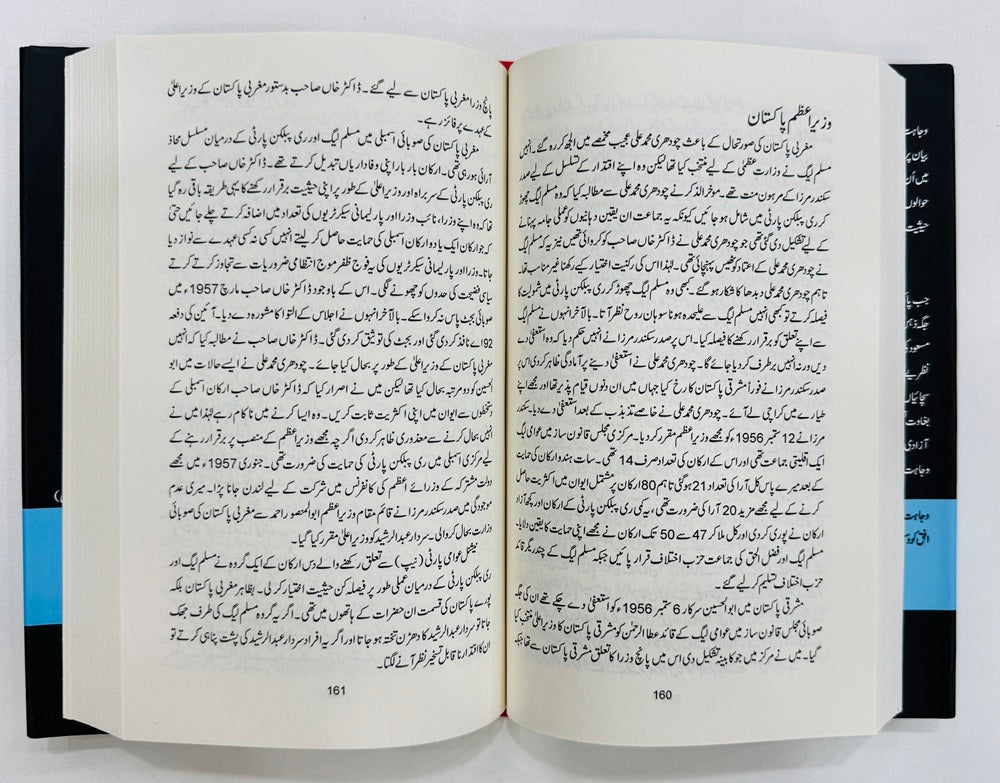 وزیراعظم پاکستان
مغربی پاکستان کی صورتحال کے باعث چودھری محمد علی عجیب مخمصے میں الجھ کر رہ گئے۔ انہیں
مسلم لیگ نے وزارت عظمیٰ کے لیے منتخب کیا تھا لیکن وہ اپنے اقتدار کے تسلسل کے لیے صدر
سکندر مرزا کے مرہون منت تھے۔ مؤخر الذکر نے چودھری محمد علی سے مطالبہ کیا کہ وہ مسلم لیگ چھوڑ
کر ری پبلکن پارٹی میں شامل ہو جائیں کیونکہ یہ جماعت ان یقین دہانیوں کو عملی جامہ پہنانے
کے لیے تشکیل دی گئی تھی جو چودھری محمد علی نے ڈاکٹر خاں صاحب کو کروائی تھیں نیز یہ کہ مسلم لیگ
نے چودھری محمد علی کے اعتماد کو ٹھیس پہنچائی تھی۔ لہٰذا اس کی رکنیت اختیار کیے رکھنا غیر مناسب تھا۔
تاہم چودھری محمد علی دبدھا کا شکار ہو گئے۔ کبھی وہ مسلم لیگ چھوڑ کر ری پبلکن پارٹی میں شمولیت کا
فیصلہ کرتے تو کبھی انہیں مسلم لیگ سے علیحدہ ہونا سوہان روح نظر آتا۔ بالآخر انہوں نے مسلم لیگ
سے اپنے تعلق کو برقرار رکھنے کا فیصلہ کیا۔ اس پر صدر سکندر مرزا نے انہیں حکم دیا کہ وہ استعفیٰ دے
دیں ورنہ انہیں برطرف کر دیا جائے گا۔ چودھری محمد علی نے استعفیٰ دینے پر آمادگی ظاہر کر دی اس پر
صدر سکندر مرزا نے فوراً مشرقی پاکستان کا رخ کیا جہاں میں ان دنوں قیام پذیر تھا اور مجھے اپنے
طیارے میں کراچی لے آئے۔ چودھری محمد علی نے خاصے تذبذب کے بعد استعفیٰ دے دیا۔ سکندر
مرزا نے 12 ستمبر 1956ء کو مجھے وزیراعظم مقرر کر دیا۔ مرکزی مجلس قانون ساز میں عوامی لیگ
ایک اقلیتی جماعت تھی اور اس کے ارکان کی تعداد صرف 14 تھی۔ سات ہندو ارکان کی حمایت
کے بعد میرے پاس کل آرا کی تعداد 21 ہو گئی تاہم 80 ارکان پر مشتمل ایوان میں اکثریت حاصل
کرنے کے لیے مجھے مزید 20 آرا کی ضرورت تھی، یہ کمی ری پبلکن پارٹی کے ارکان اور کچھ آزاد
ارکان نے پوری کر دی اور کل ملا کر 47 سے 50 تک ارکان نے مجھے اپنی حمایت کا یقین دلایا۔
مسلم لیگ اور فضل الحق کی جماعت حزب اختلاف قرار پائیں جبکہ مسلم لیگ کے چندریگر قائد
حزب اختلاف تسلیم کر لیے گئے۔
مشرقی پاکستان میں ابوالحسین سرکار 6 ستمبر 1956ء کو استعفیٰ دے چکے تھے ان کی جگہ
صوبائی مجلس قانون ساز میں عوامی لیگ کے قائد عطا الرحمٰن کو مشرقی پاکستان کا وزیراعلیٰ منتخب کیا
گیا۔ میں نے مرکز میں جو کابینہ تشکیل دی اس میں پانچ وزرا کا تعلق مشرقی پاکستان سے تھا جبکہ
160
پانچ وزرا مغربی پاکستان سے لیے گئے۔ ڈاکٹر خاں صاحب بدستور مغربی پاکستان کے وزیراعلیٰ
کے عہدے پر فائز رہے۔
مغربی پاکستان کی صوبائی اسمبلی میں مسلم لیگ اور ری پبلکن پارٹی کے درمیان مسلسل محاذ
آرائی ہو رہی تھی۔ ارکان بار بار اپنی وفاداریاں تبدیل کرتے تھے۔ ڈاکٹر خاں صاحب کے لیے
ری پبلکن پارٹی کے سربراہ اور وزیراعلیٰ کے طور پر اپنی حیثیت برقرار رکھنے کا یہی طریقہ باقی رہ گیا
تھا کہ وہ اپنے وزرا، نائب وزرا اور پارلیمانی سیکرٹریوں کی تعداد میں اضافہ کرتے چلے جائیں حتیٰ
کہ جو ارکان ایک یا دو ارکان اسمبلی کی حمایت حاصل کر لیتے انہیں کسی نہ کسی عہدے سے نواز دیا
جاتا۔ وزرا اور پارلیمانی سیکرٹریوں کی یہ فوج ظفر موج انتظامی ضروریات سے تجاوز کرتے کرتے
سیاسی فضیحت کی حدوں کو چھونے لگی۔ اس کے باوجود ڈاکٹر خاں صاحب مارچ 1957ء میں
صوبائی بجٹ پاس نہ کروا سکے۔ بالآخر انہوں نے اجلاس کے التوا کا مشورہ دے دیا۔ آئین کی دفعہ
92 اے نافذ کر دی گئی اور بجٹ کی توثیق کر دی گئی۔ ڈاکٹر خاں صاحب نے مطالبہ کیا کہ انہیں
مغربی پاکستان کے وزیراعلیٰ کے طور پر بحال کیا جائے۔ چودھری محمد علی نے ایسے حالات میں ابو
الحسین کو دو مرتبہ بحال کیا تھا لیکن میں نے اصرار کیا کہ ڈاکٹر خاں صاحب ارکان اسمبلی کے
دستخطوں سے ایوان میں اپنی اکثریت ثابت کریں۔ وہ ایسا کرنے میں ناکام رہے لہٰذا میں نے
انہیں بحال کرنے سے معذوری ظاہر کر دی اگرچہ مجھے وزیراعظم کے منصب پر برقرار رہنے کے
لیے مرکزی اسمبلی میں ری پبلکن پارٹی کی حمایت کی ضرورت تھی۔ جنوری 1957ء میں مجھے
دولت مشترکہ کے وزرائے اعظم کی کانفرنس میں شرکت کے لیے لندن جانا پڑا۔ میری عدم
موجودگی میں صدر سکندر مرزا نے قائم مقام وزیراعظم ابوالمنصور احمد سے مغربی پاکستان کی صوبائی
وزارت بحال کروا لی۔ سردار عبدالرشید کو وزیراعلیٰ مقرر کیا گیا۔
نیشنل عوامی پارٹی (نیپ) سے تعلق رکھنے والے دس ارکان کے ایک گروہ نے مسلم لیگ اور
ری پبلکن پارٹی کے درمیان عملی طور پر فیصلہ کن حیثیت اختیار کر لی۔ بظاہر مغربی پاکستان بلکہ
پورے پاکستان کی قسمت ان حضرات کے ہاتھوں میں تھی۔ اگر یہ گروہ مسلم لیگ کی طرف جھک
جاتا تو سردار عبدالرشید کا دھڑن تختہ ہو جاتا اور اگر یہ افراد سردار عبدالرشید کی پشت پناہی کرتے تو
ان کا اقتدار ناقابل تسخیر نظر آنے لگتا۔
161
وجاہت
بیان پر
میں اُن
حوالوں
حیثیت
جب پا
جگہ
مسعود
نظریے
سچائیاں
بغاوت
آزادی
وجاہت
وجاہت
افق کو